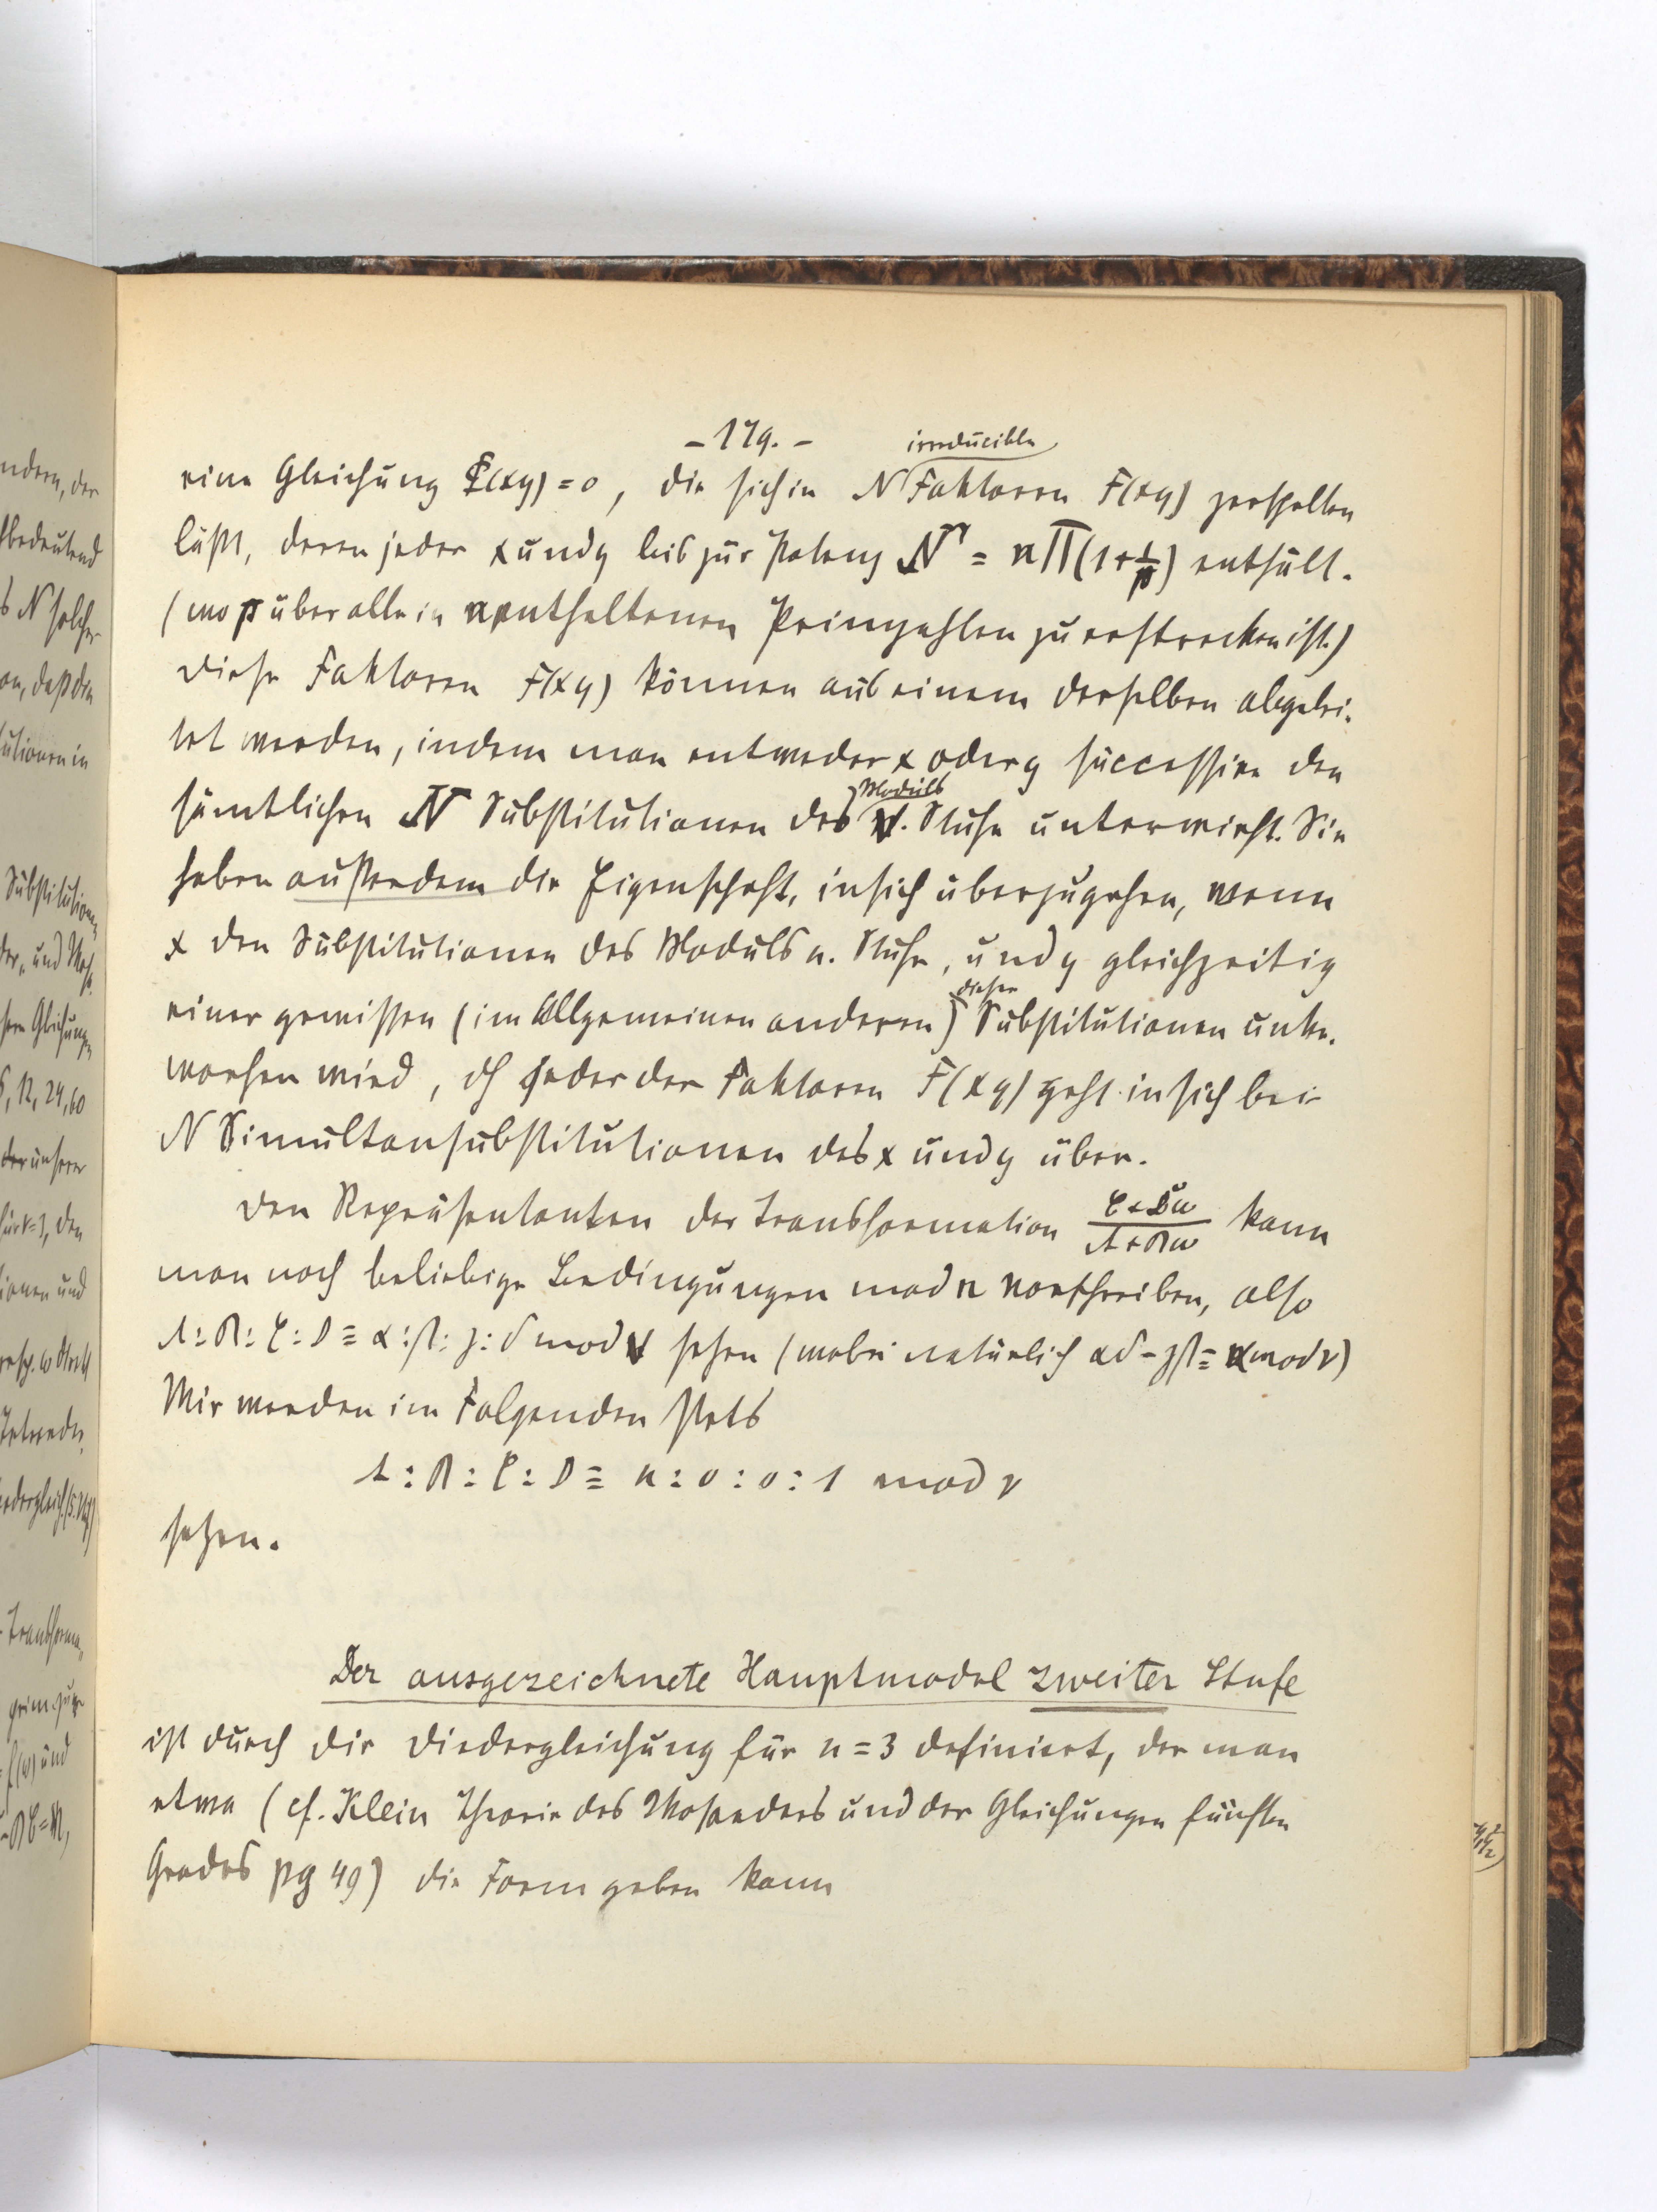 - 179. -
irreducible
eine Gleichung Φ(xy) = 0, die sich in N Faktoren F(xy) zerspalten
läßt, deren jeder x und y bis zur Potenz N' = n∏(1+1/p) enthält.
(wo p über alle in n enthaltenen Primzahlen zu erstrecken ist.)
Diese Faktoren F(xy) können aus einem derselben abgelei-
tet werden, indem man entweder x oder y successive den
Moduls
sämtlichen N Substitutionen des ν. Stufe unterwirft. Sie
haben außerdem die Eigenschaft, in sich überzugehen, wenn
x den Substitutionen des Moduls ν. Stufe, und y gleichzeitig
dieser
einer gewissen (im Allgemeinen anderen) Substitutionen unter-
worfen wird, dh jeder der Faktoren F(xy) geht in sich bei
N Simultansubstitutionen des x und y über.
Den Repräsentanten der Transformation (C+Dω)/(A+Bω) kann
man noch beliebige Bedingungen mod n vorschreiben, also
A:B:C:D ≡ α:β:γ:δ mod ν setzen (wobei natürlich αδ-γβ ≡ n mod ν)
Wir werden im Folgenden stets
A:B:C:D ≡ n:0:0:1 mod ν
setzen.
Der ausgezeichnete Hauptmodul zweiter Stufe
ist durch die Diedergleichung für n=3 definiert, der man
etwa (cf. Klein Theorie des Ikosaeders und der Gleichungen fünften
Grades pg 49) die Form geben kann